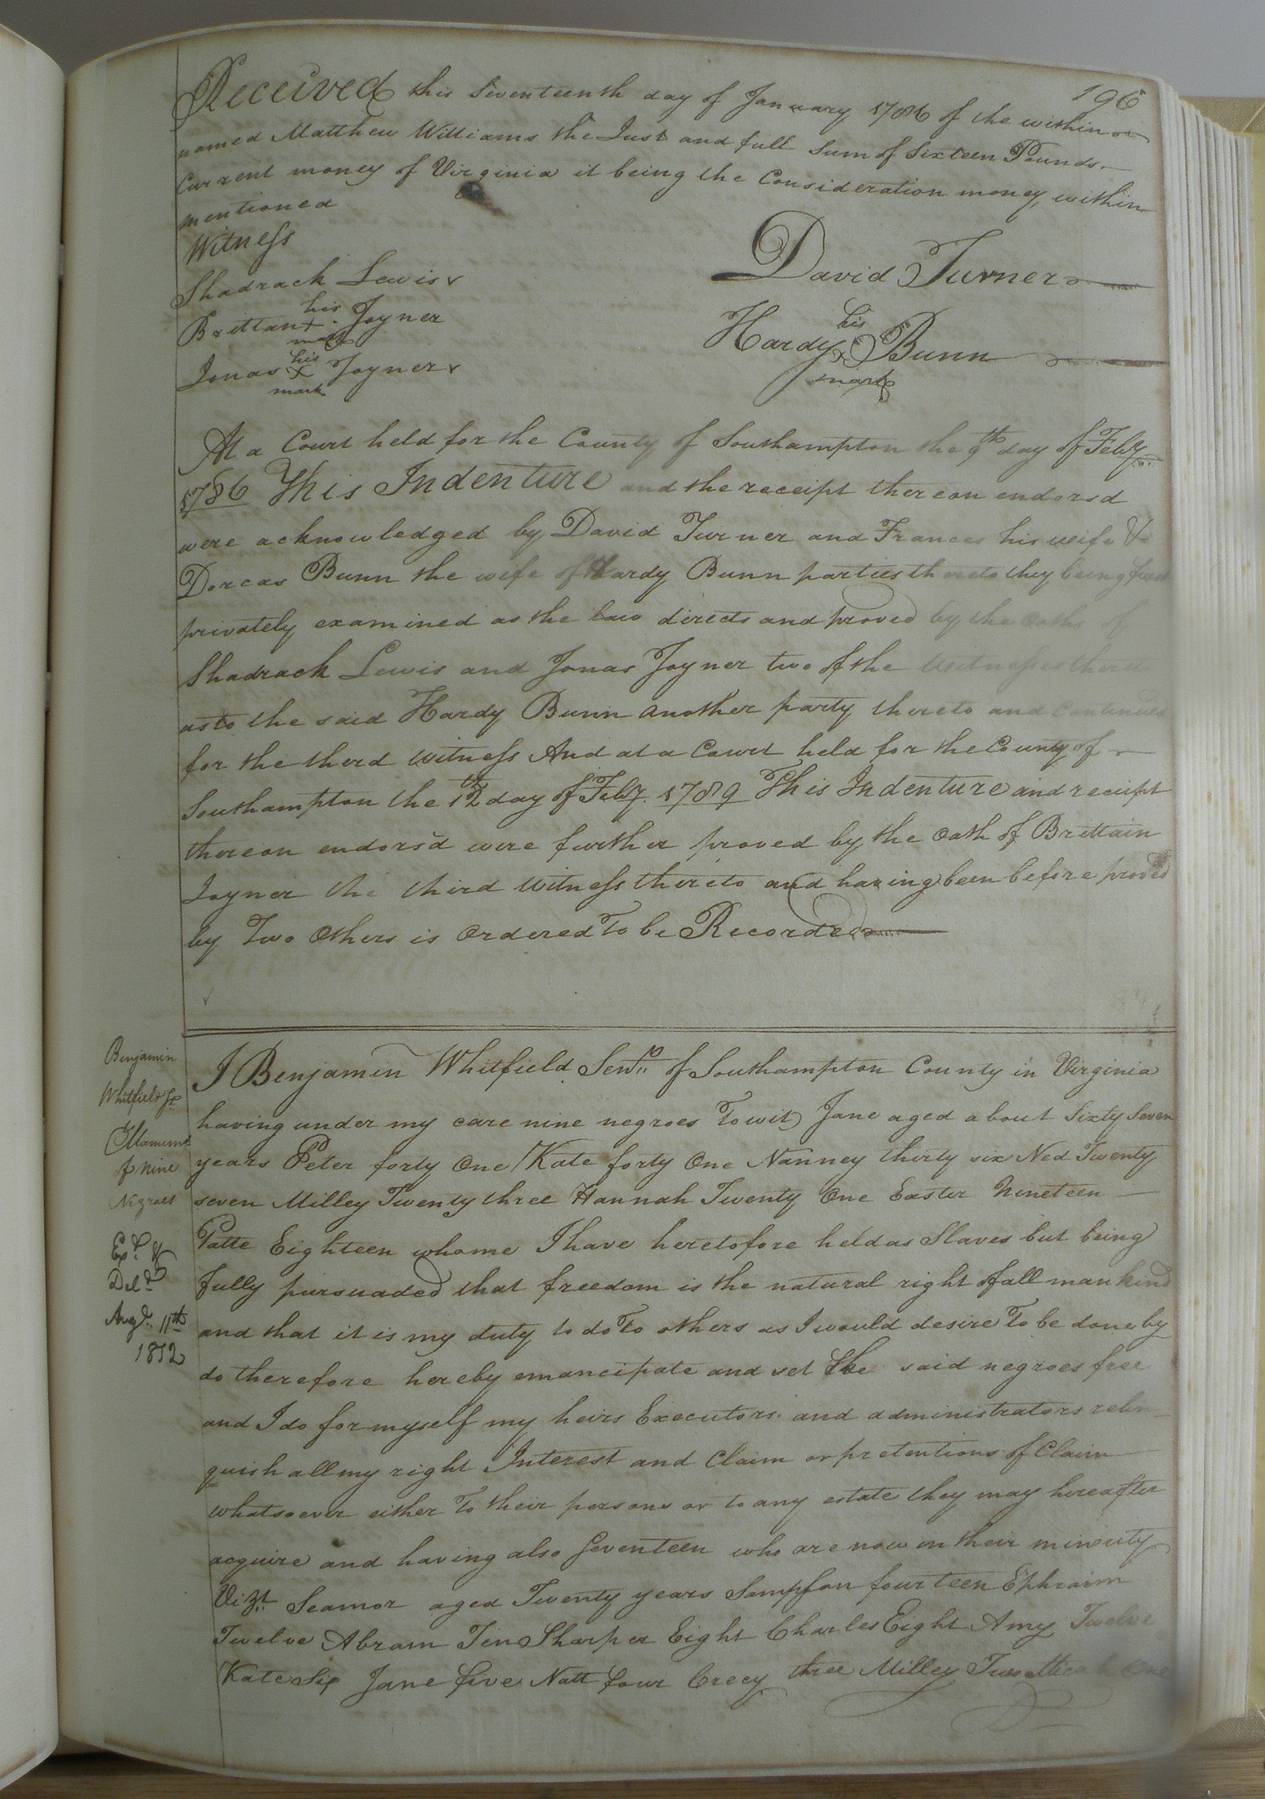 196
Received this Seventeenth day of January 1786 of the within
named Matthew Williams the Just and full Sum of Sixteen Pounds
Current money of Virginia it being the Consideration money within
mentioned
Witness
David Turner
Shadrack Lewis
his
Brittan + Joyner
mark
his
Hardy X Bunn
mark
his
Jonas X Joyner
mark
At a Court held for the County of Southampton the 9th day of Feby
1786 This Indenture and the receipt thereon endorsd
were acknowledged by David Turner and Frances his wife &
Dorcas Bunn the wife of Hardy Bunn parties thereto they being first
privately examined as the law directs and proved by the oaths of
Shadrack Lewis and Jonas Joyner two of the Witnesses thereto
as to the said Hardy Bunn another party thereto and Continued
for the third Witness And at a Court held for the County of
Southampton the 12th day of Feby. 1789 This Indenture and receipt
thereon endorsd were further proved by the Oath of Brittain
Joyner the third Witness thereto and having been before proved
by Two Others is Ordered To be Recorded
Benjamin
Whitfield Sr
Manumn
of nine
Negroes
Exd. &
Deld
Augt. 11th
1852
I Benjamin Whitfield Senr. of Southampton County in Virginia
having under my care nine negroes Towit Jane aged about Sixty Seven
years Peter forty One Kate forty One Nanney thirty six Ned Twenty
seven Milley Twenty three Hannah Twenty One Easter Nineteen
Patte Eighteen whome I have heretofore held as Slaves but being
fully pursuaded that freedom is the natural right of all mankind
and that it is my duty to do To others as I would desire To be done by
do therefore hereby emancipate and set the said negroes free
and I do for myself my heirs Executors and administrators relin
quish all my right Interest and Claim or pretentions of Claim
whatsoever either To their persons or to any estate they may hereafter
acquire and having also Seventeen who are now in their minority
Vizt. Seamor aged Twenty years Sampson fourteen Ephraim
Twelve Abram Ten Sharper Eight Charles Eight Amy Twelve
Kate Six Jane five Natt four Creecy three Milley Two One